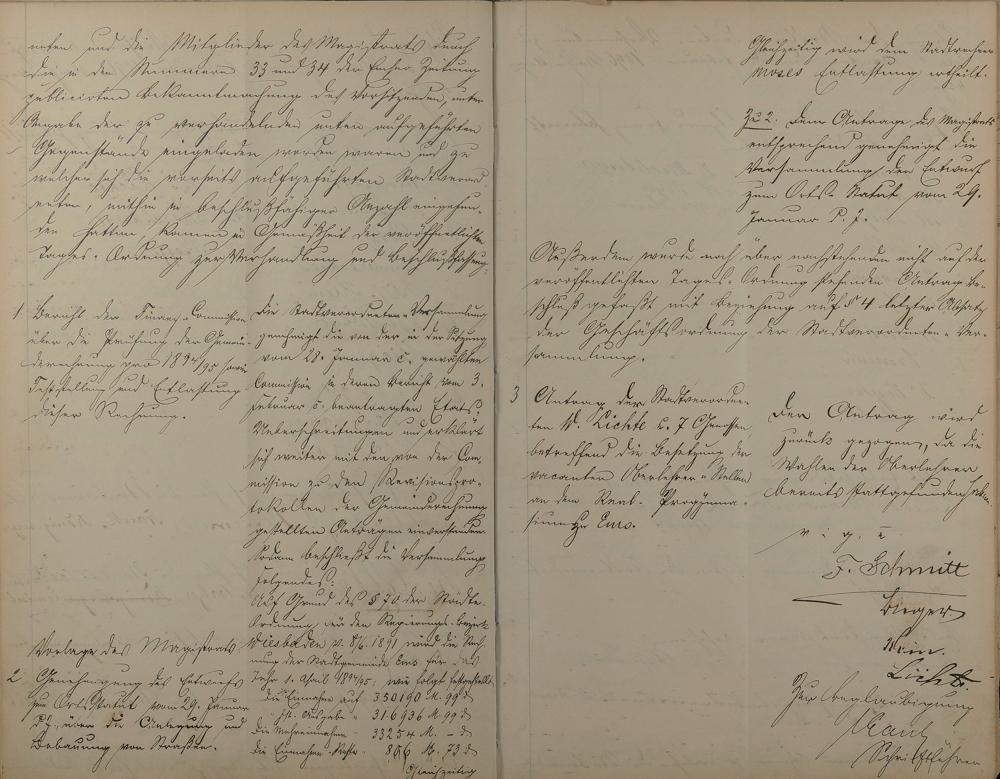 neten und die Mitglieder des Magistrats durch
die in den Nummern 33 und 34 der Emser Zeitung
publicirten Bekanntmachung des Vorsitzenden, unter
Angabe der zu verhandelnden unten aufgeführten
Gegenstände eingeladen worden waren und zu
welcher sich die vorseits aufgeführten Stadtverord
neten, mithin in beschlußfähiger Anzahl eingefun-
den hatten, kamen in Gemäßheit der veröffentlichten
Tages-Ordnung zur Verhandlung und Beschlußfassung:
1. Bericht der Finanz-Commission
über die Prüfung der Gemein-
derechnung pro 1894/95 sowie
Feststellung und Entlastung
dieser Rechnung.
Die Stadtverordneten-Versammlung
genehmigt die von der in der Sitzung
vom 28. Januar c. gewählten
Commission in deren Bericht vom 3.
Februar c. beantragten Etats-
Ueberschreitungen und erklärt
sich weiter mit den von der Com-
mission zu den Revisionspro-
tokollen der Gemeinderechnung
gestellten Anträgen einverstanden.
Sodann beschließt die Versammlung
Folgendes:
Auf Grund des § 70 der Städte-
Ordnung für den Regierungs-Bezirk
Wiesbaden v. 8/6. 1891 wird die Rech-
nung der Stadtgemeinde Ems für das
Jahr 1. April 1894/95, wie folgt festgestellt:
die Einnahme auf 350190 M. 99 d
die Ausgabe " 316936 M. 99 d
die Mehreinnahme 33254 M. – d
die Einnahme-Reste 866 M. 73 d
Gleichzeitig
Vorlage des Magistrats
2. Genehmigung des Entwurfs
zum Ortsstatut vom 29. Januar
p. J. über die Anlegung und
Bebauung von Straßen.
Gleichzeitig wird dem Stadtrechner
Moses Entlastung ertheilt.
Zu 2. Dem Antrage des Magistrats
entsprechend genehmigt die
Versammlung den Entwurf
zum Orts-Statut vom 29.
Januar p. J.
Außerdem wurde noch über nachstehenden nicht auf der
veröffentlichten Tages-Ordnung stehenden Antrag Be-
schluß gefaßt mit Beziehung auf § 4 letzter Absatz
der Geschäftsordnung der Stadtverordneten-Ver-
sammlung.
3 Antrag der Stadtverordne-
ten W. Lichte u. 7 Genossen,
betreffend die Besetzung der
vacanten Oberlehrer-Stellen
an dem Real-Progymna-
sium zu Ems.
Der Antrag wird
zurück gezogen, da die
Wahlen der Oberlehrer
bereits stattgefunden haben.
v. g. u.
F. Schmitt
Linger
Wein.
Licht.
Zur Beglaubigung
Schriftführer